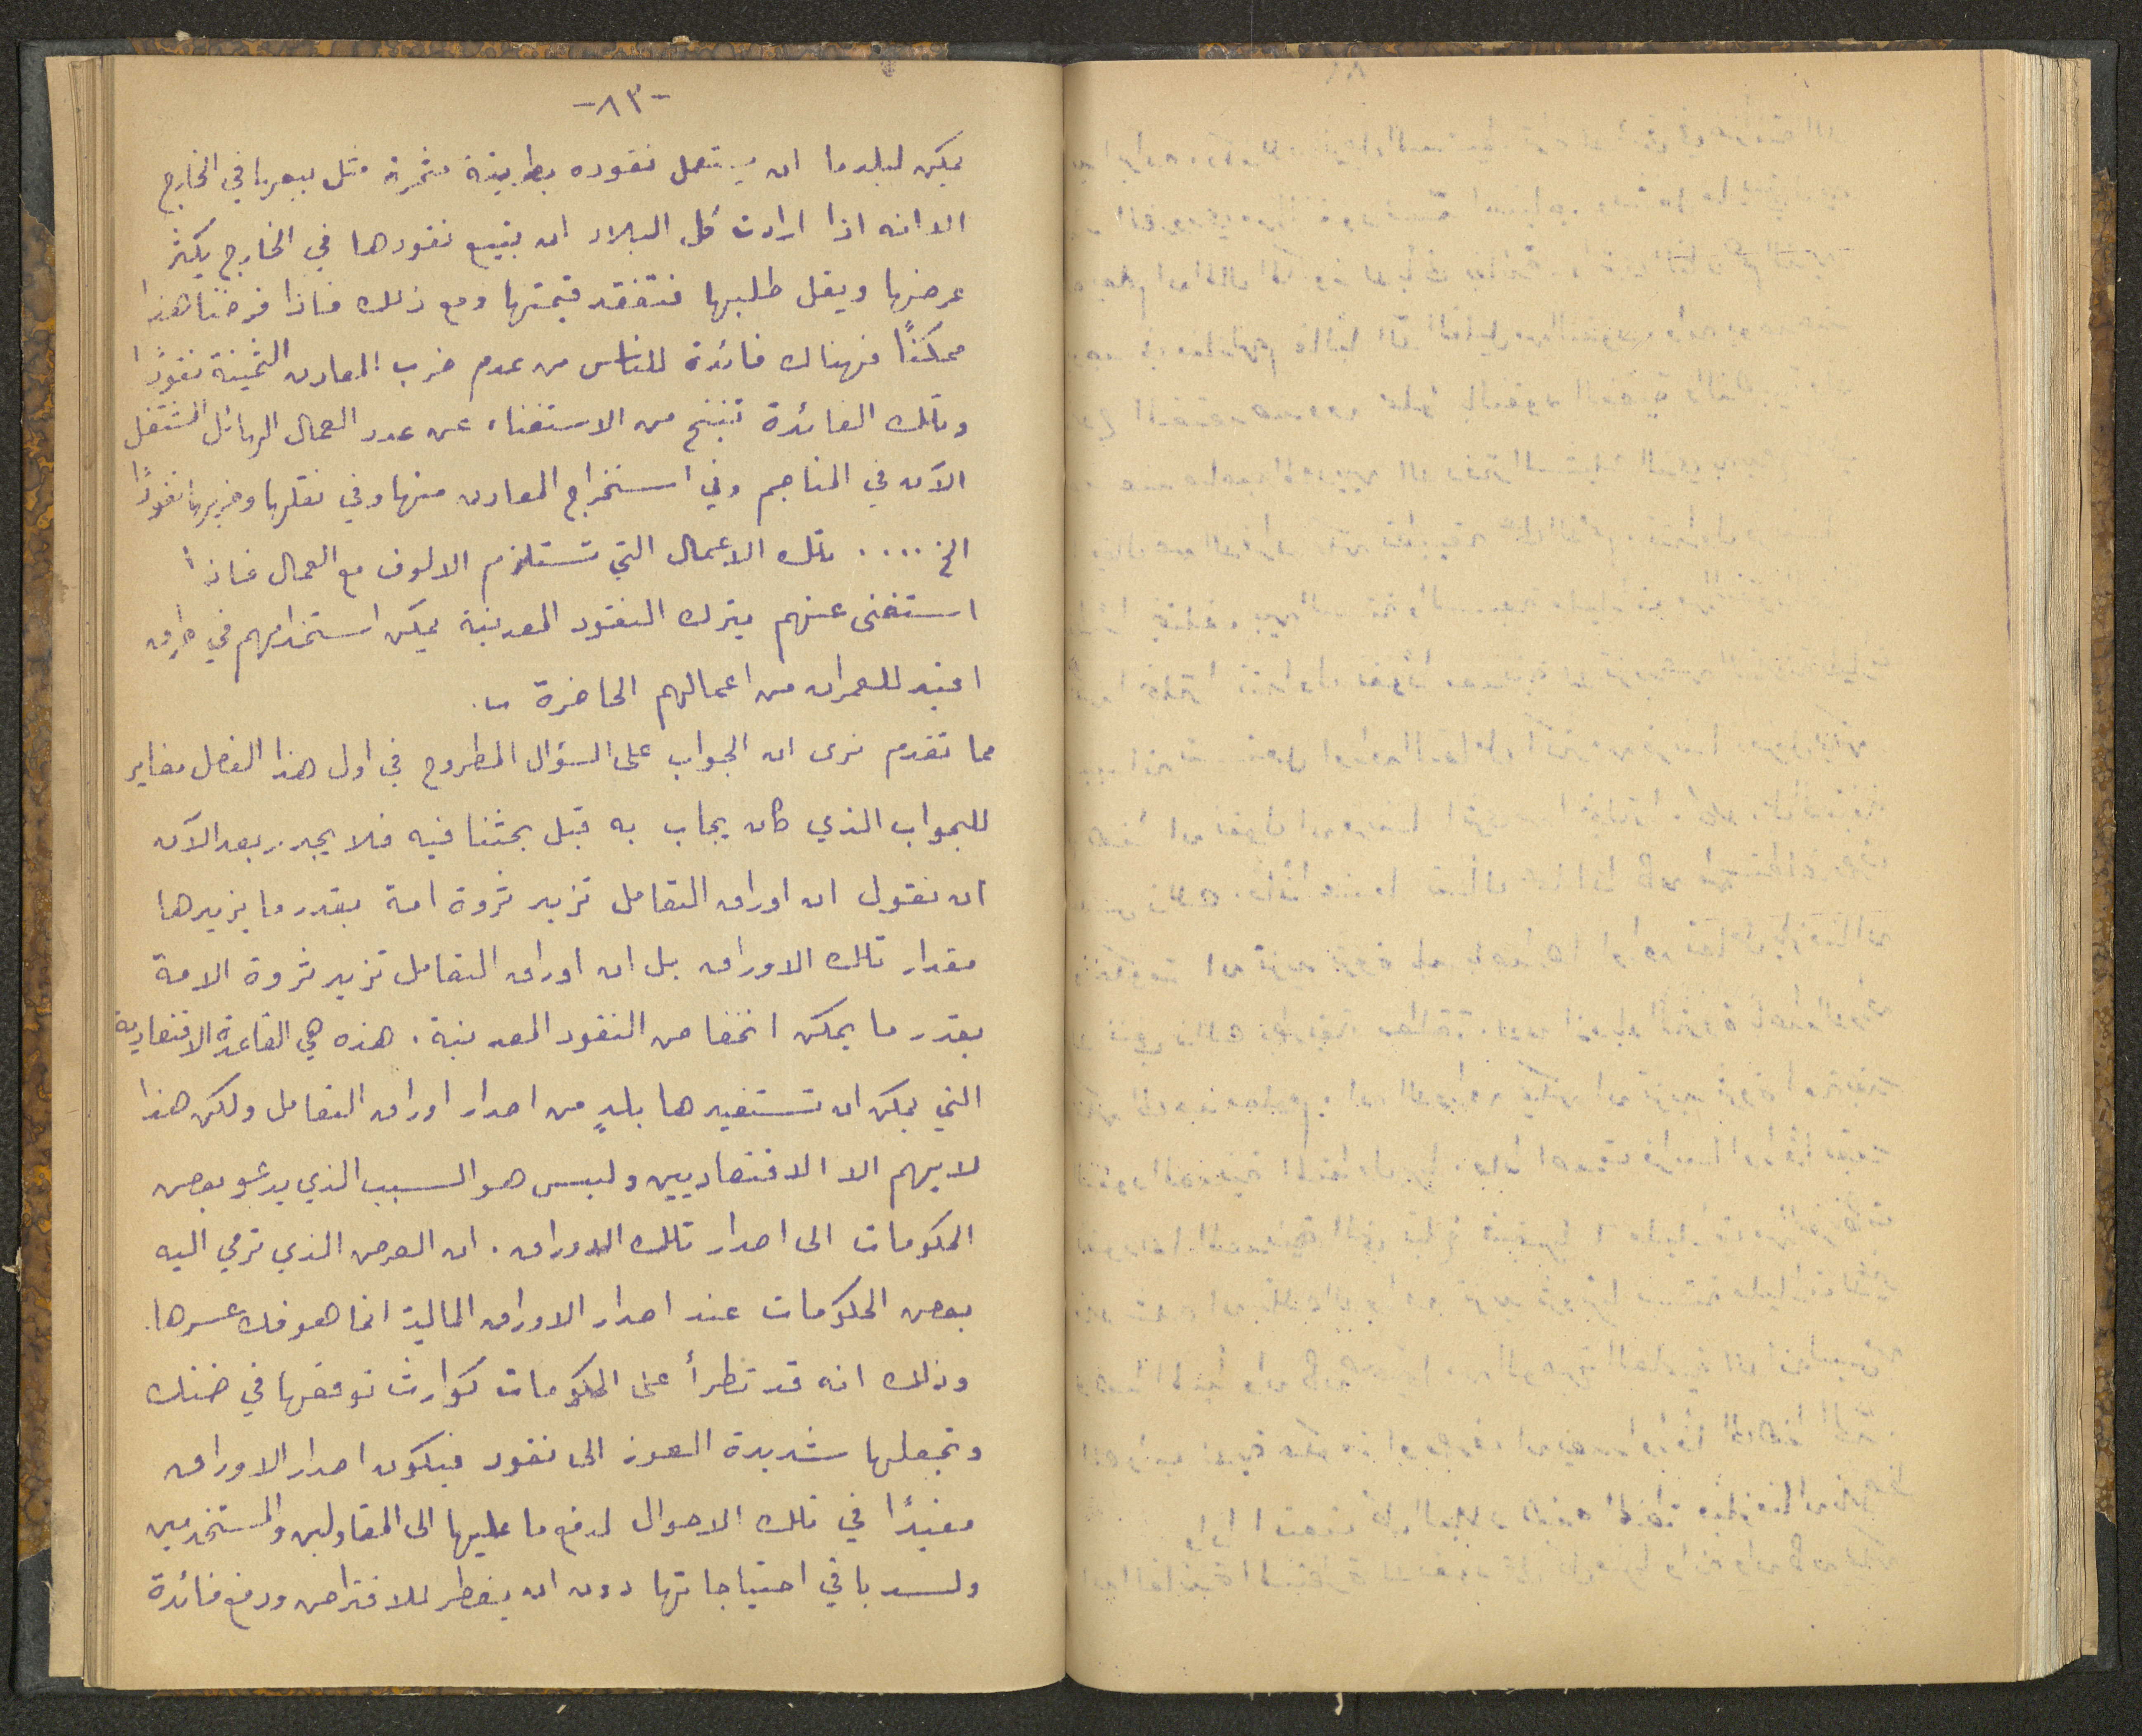 -٨٣-
يمكن لبلد ما ان يستعمل نقوده بطريقة مثمرة مثل بيعها في الخارج
الا انه اذا ارادت كل البلاد ان تبيع نقودها في الخارج يكثر
عرضها ويقل طلبها فتفقد قيمتها ومع ذلك فاذا فرضنا هذا
ممكنًا فهناك فائدة للناس من عدم ضرب المعادن الثمينة نقودًا
وتلك الفائدة تنتج من الاستغناء عن عدد العمال الهائل المشتغل
الآن في المناجم وفي استخراج المعادن منها وفي نقلها وضربها نقودًا
الخ .... تلك الاعمال التي تستلزم الالوف مع العمال فاذا
استغنى عنهم بترك النقود المعدنية يمكن استخدامهم في طرق
افيد للعمران من اعمالهم الحاضرة .
مما تقدم نرى ان الجواب على السؤال المطروح في اول هذا الفصل مغاير
للجواب الذي كان يجاب به قبل بحثنا فيه فلا يجدر بعد الآن
ان نقول ان اوراق التعامل تزيد ثروة امة بقدر ما يزيدها
مقدار تلك الاوراق بل ان اوراق التعامل تزيد ثروة الامة
بقدر ما يمكن انخفاض النقود المعدنية . هذه هي القاعدة الاقتصادية
التي يمكن ان تستفيدها بلدٍ من اصدار اوراق التعامل ولكن هذا
لا يهم الا الاقتصاديين وليس هو السبب الذي يدعو بعض
الحكومات الى اصدار تلك الاوراق . ان الغرض الذي ترمي اليه
بعض الحكومات عند اصدار الاوراق المالية انما هو فك عسرها .
وذلك انه قد تطرأ على الحكومات كوارث توقعها في ضنك
وتجعلها شديدة العوز الى نقود فيكون اصدار الاوراق
مفيدًا في تلك الاحوال لدفع ما عليها الى المقاولين والمستخدمين
ولسد باقي احتياجاتها دون ان يضطر للاقتراض ودفع فائدة